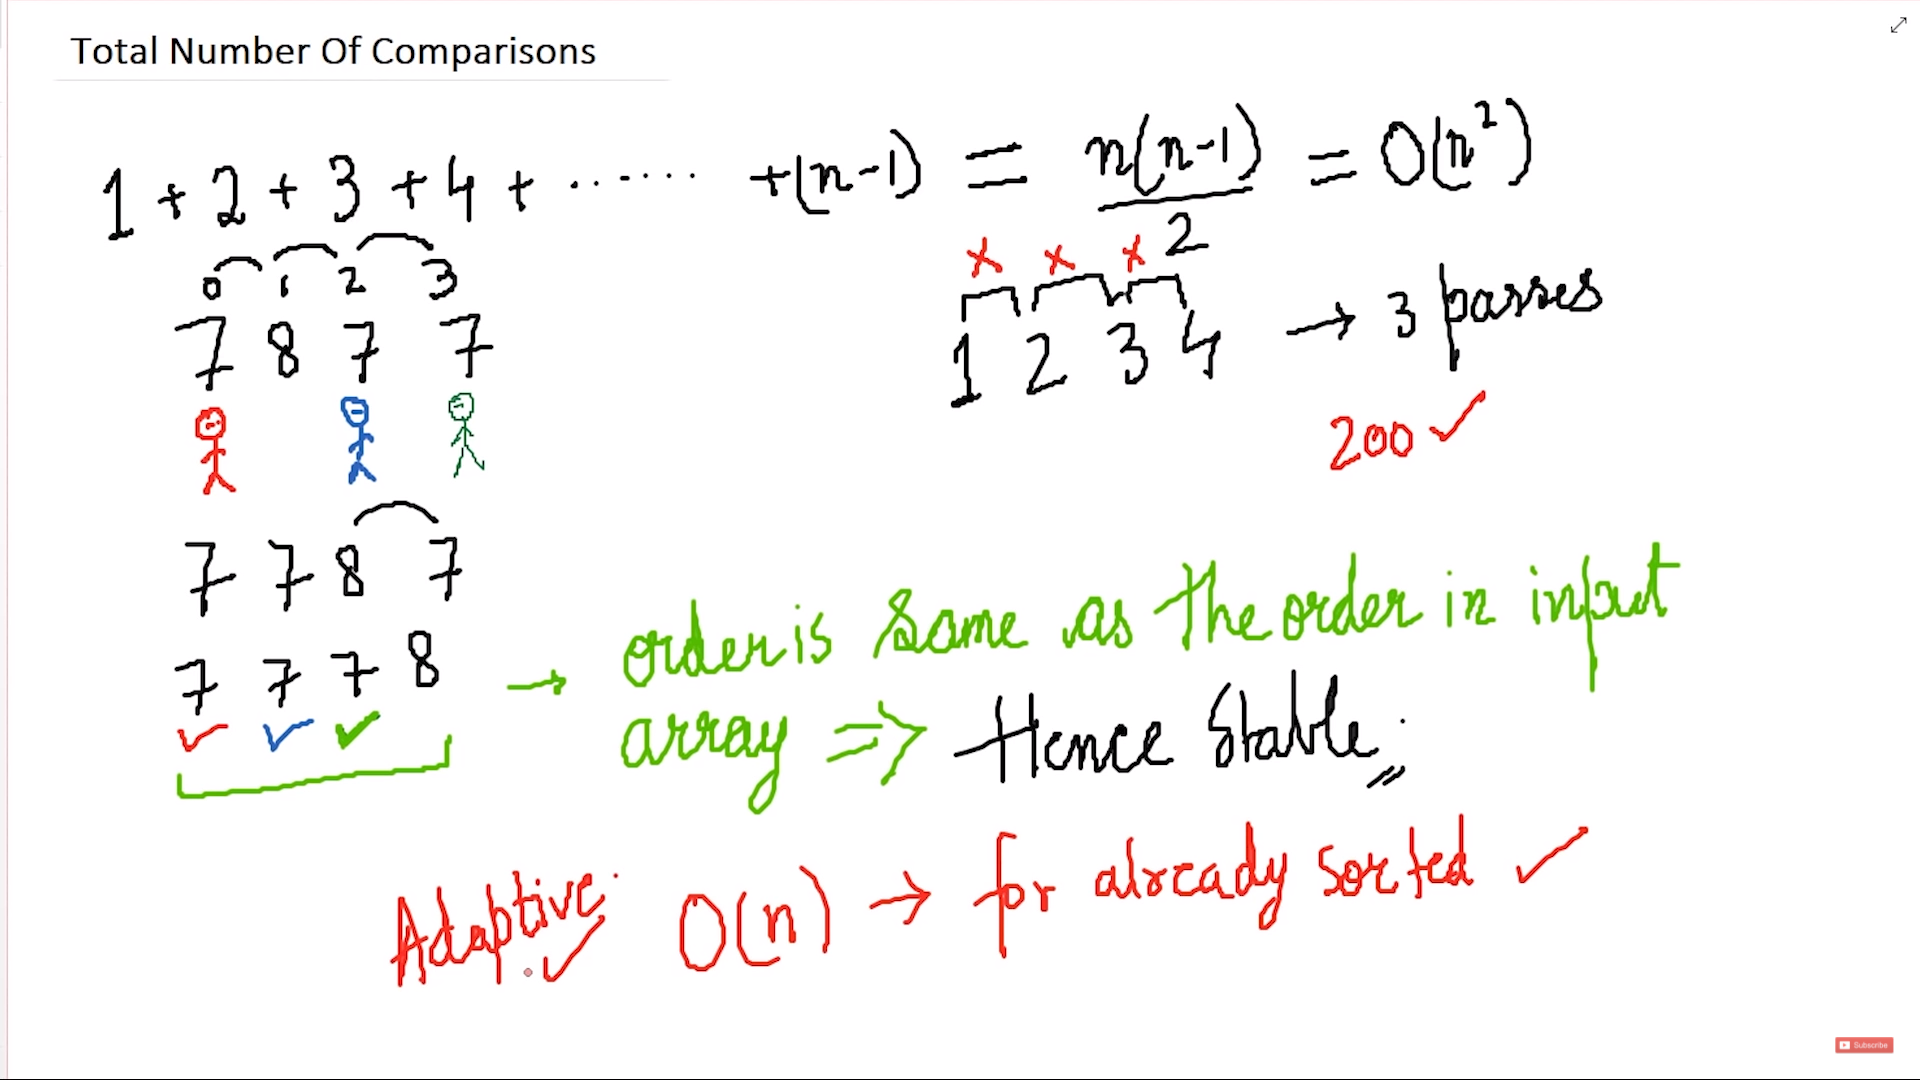 Total Number Of Comparisons
1 + 2 + 3 + 4 + ........ +(n-1) = n(n-1)/2 = O(n²)
0 1 2 3
x x x
7 8 7 7
1 2 3 4 → 3 passes
200 ✓
7 7 8 7
7 7 7 8 → order is same as the order in input
array ⇒ Hence Stable.
✓ ✓ ✓
Adaptive. ✓ O(n) → for already sorted ✓
Subscribe